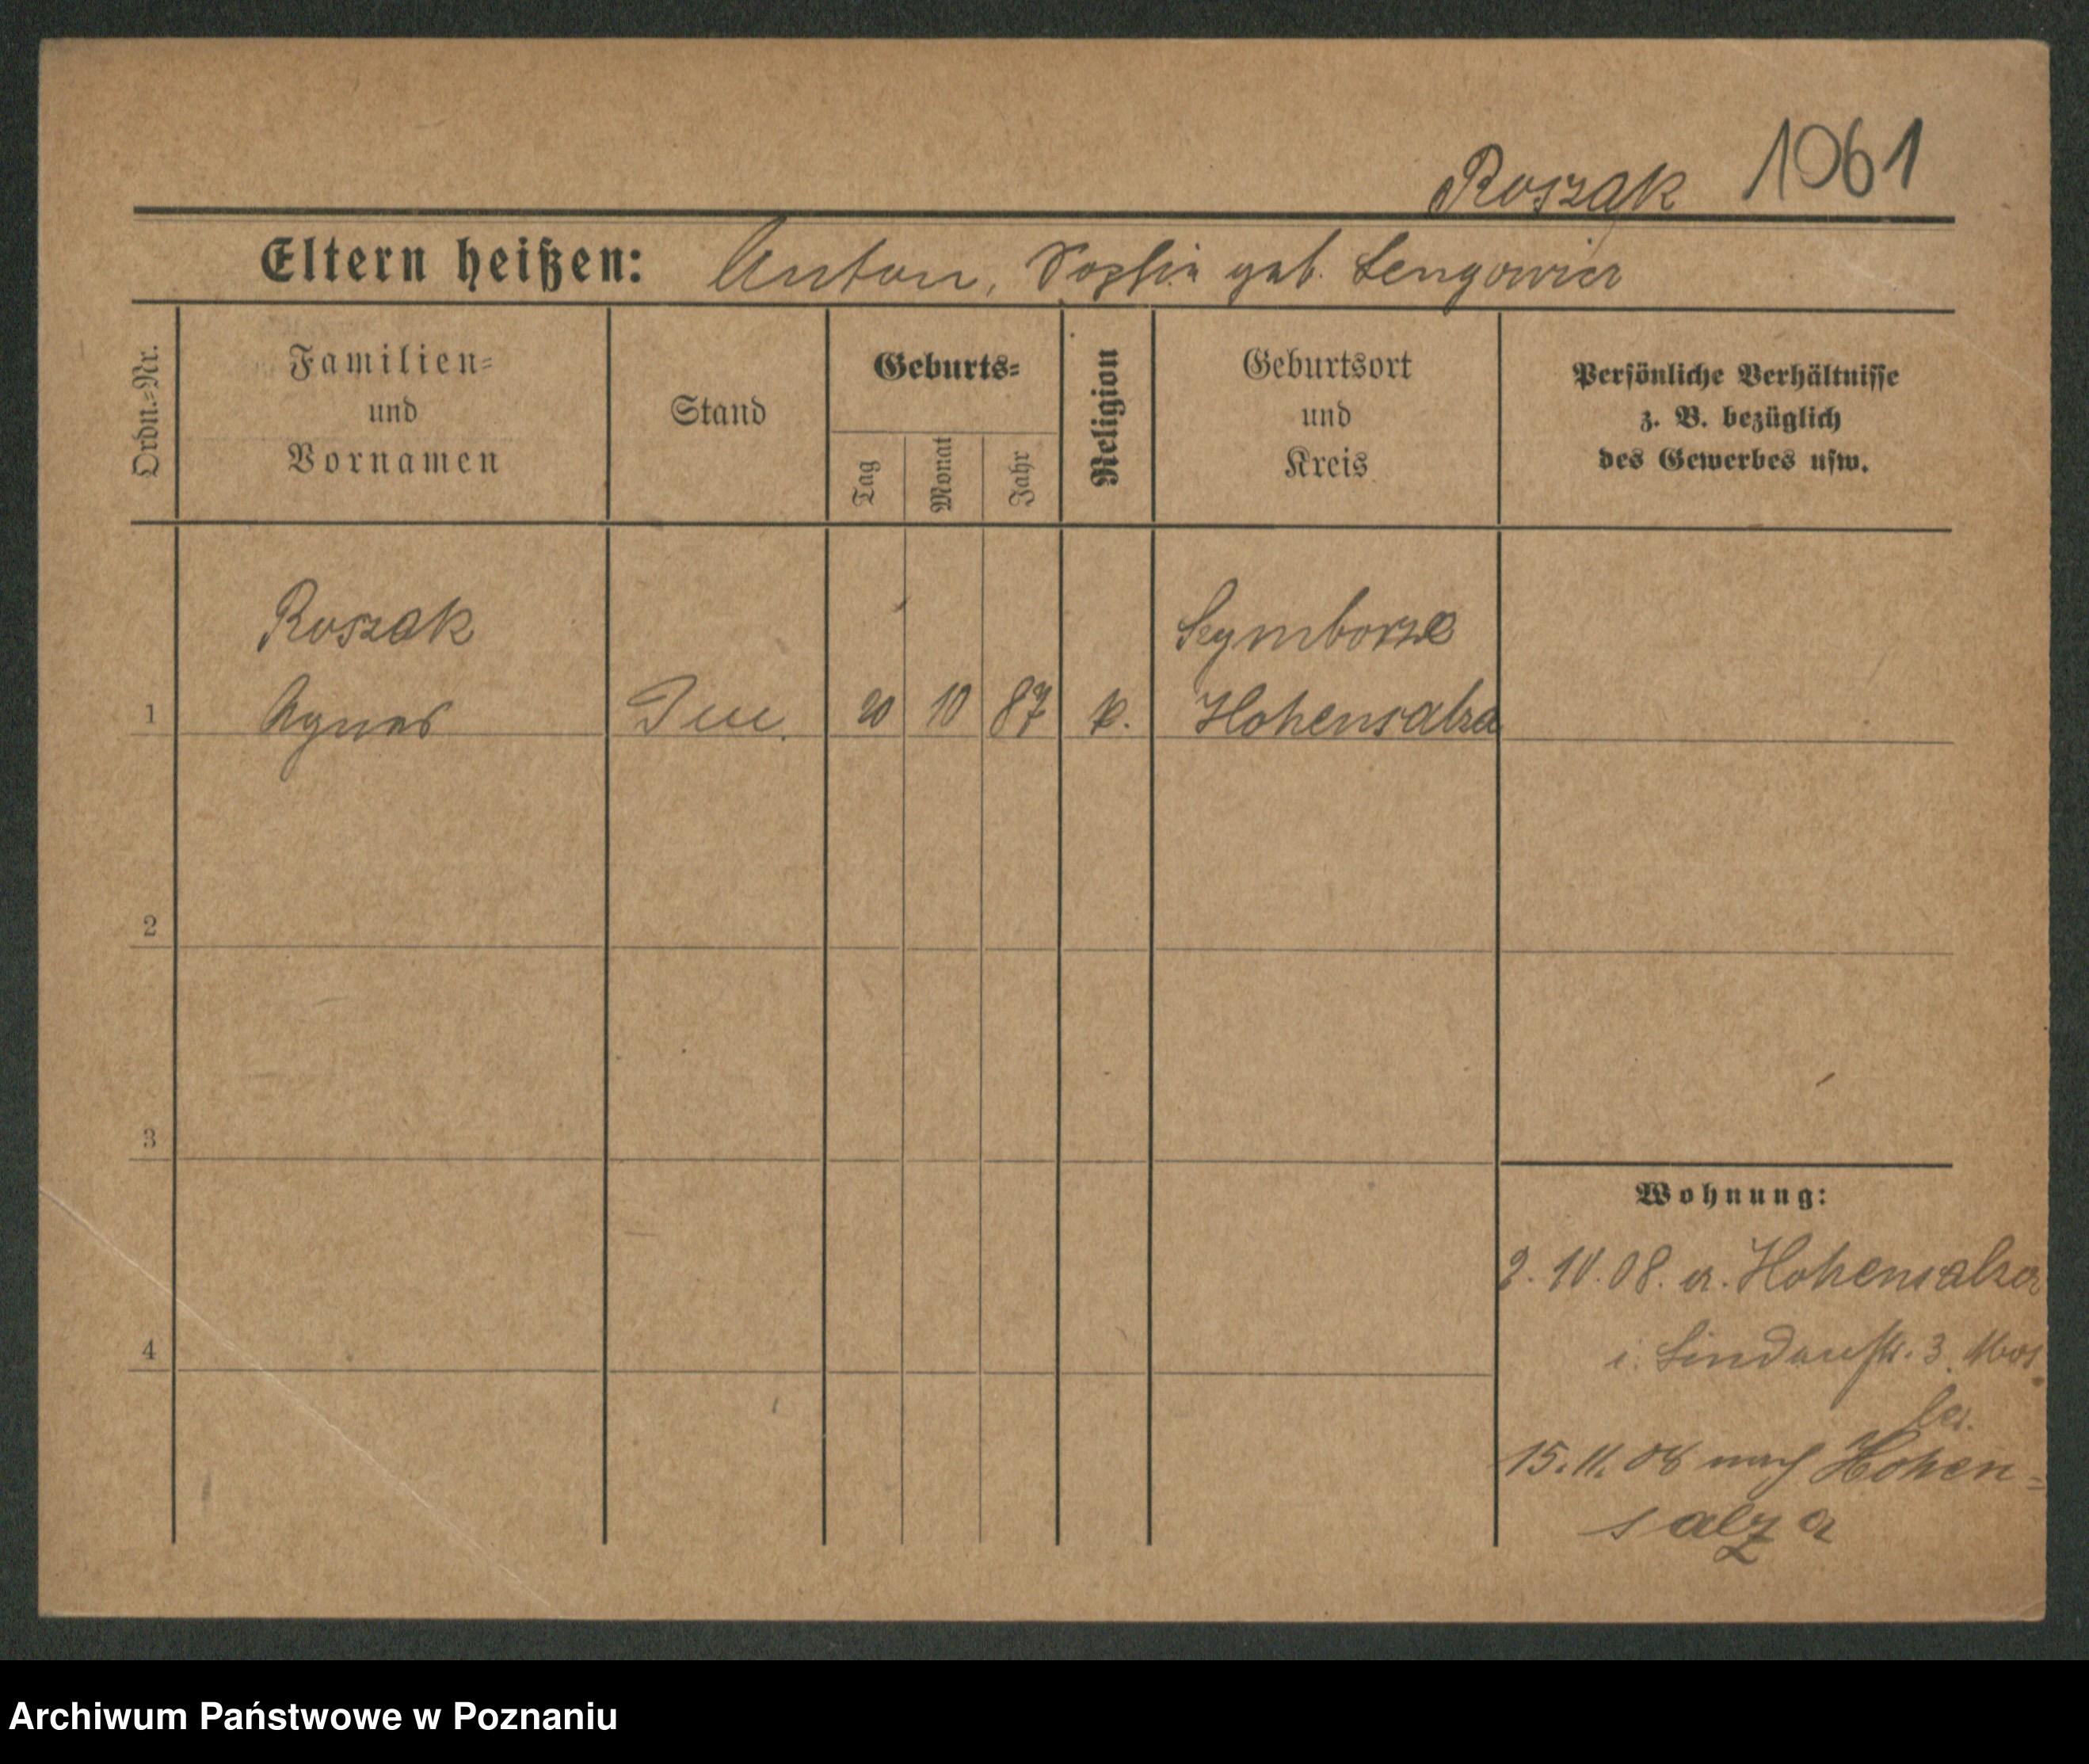 Roszak 1061
Eltern heißen: Anton, Sophia geb. Lengowicz
Ordn.-Nr.
Familien-
und
Vornamen
Stand
Geburts-
Tag
Monat
Jahr
Religion
Geburtsort
und
Kreis
Persönliche Verhältnisse
z. B. bezüglich
des Gewerbes usw.
Roszak
Szymborze
1 Agnes 20 10 87 k. Hohensalza
2
3
4
Wohnung:
2. 10. 08. a. Hohensalza
i. Lindenstr. 3
bei
15. 11. 08 nach Hohen-
salza
Archiwum Państwowe w Poznaniu